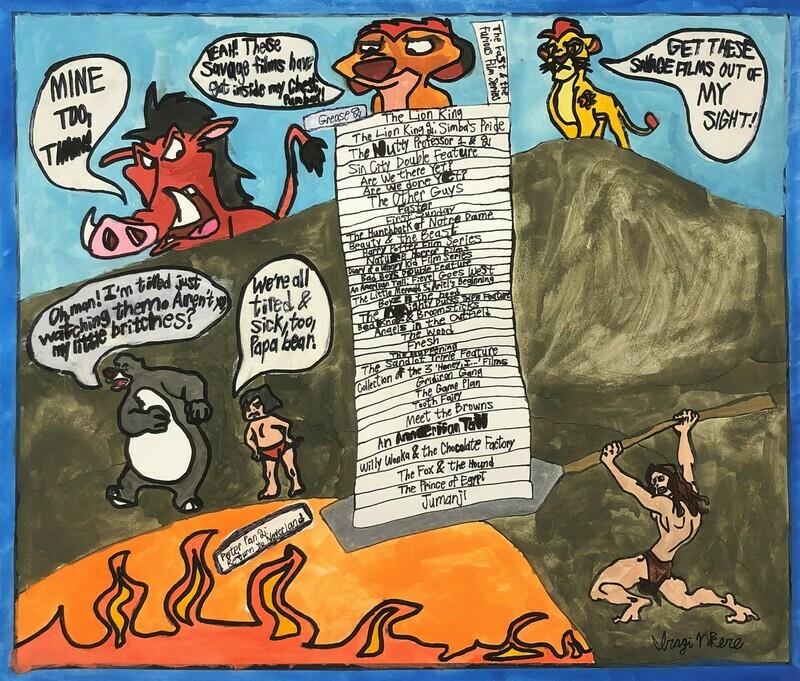 MINE
TOO,
YEAH! These
Savage films have
got inside my Chest,
The Fast & the
Furious Film Series
GET THESE
SAVAGE FILMS OUT OF
MY
SIGHT!
Grease 2
The Lion King
The Lion King 2: Simba's Pride
The Nutty Professor 1 & 2
Sin City Double Feature
Are We there Yet?
Are we done Yet?
The Other Guys
Faster
First Sunday
The Hunchback of Notre Dame
Beauty & the Beast
Harry Potter Film Series
Horror Films
Diary of a Wimpy Kid Film Series
Bad Boys Double Feature
An American Tail: Fievel Goes West
The Little Mermaid 3: Ariel's Beginning
Boyz n the Hood
The Mighty Ducks Feature
Bedknobs & Broomsticks
Angels in the Outfield
The Wood
Fresh
The Happening
The Sandlot Triple Feature
Collection of the 3 'Honey, I...' Films
Gridiron Gang
The Game Plan
Tooth Fairy
Meet the Browns
An American Tail
Willy Wonka & the Chocolate Factory
The Fox & the Hound
The Prince of Egypt
Jumanji
Oh man! I'm tired just
watching them. Aren't you,
my little britches?
We're all
tired &
sick, too,
Papa bear.
Peter Pan 2:
Return to Neverland